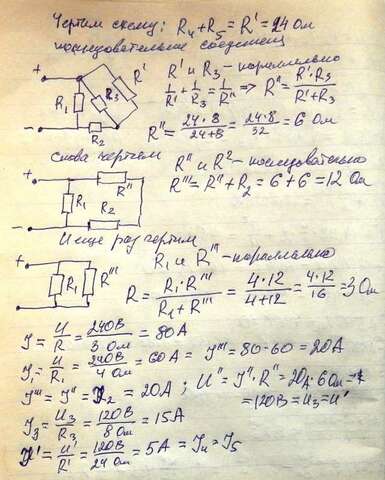 Чертим схему: R₄ + R₅ = R' = 24 Ом
последовательное соединен
R' и R₃ - параллельно
+ R₁ R₃ R' R₂ −
1/R' + 1/R₃ = 1/R'' => R'' = R'·R₃/(R'+R₃)
R'' = 24·8/(24+8) = 24·8/32 = 6 Ом
Снова чертим
R'' и R² - последовательно
R''' = R'' + R₂ = 6 + 6 = 12 Ом
+ R₁ R'' R₂ −
И еще раз чертим
R₁ и R''' - параллельно
+ R₁ R''' −
R = R₁·R'''/(R₁+R''') = 4·12/(4+12) = 4·12/16 = 3 Ом
J = U/R = 240В/3 Ом = 80А
J₁ = U/R₁ = 240В/4 Ом = 60А J''' = 80-60 = 20А
J''' = J'' = J₂ = 20А ; U'' = J''·R'' = 20А·6 Ом =
= 120В = U₃ = U'
J₃ = U₃/R₃ = 120В/8 Ом = 15А
J' = U'/R' = 120В/24 Ом = 5А = J₄ = J₅